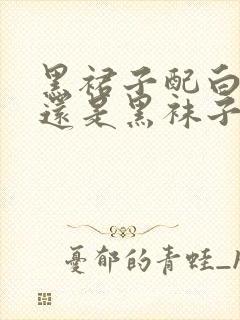 黑裙子配白
還是黑袜子
憂郁的青蛙_1